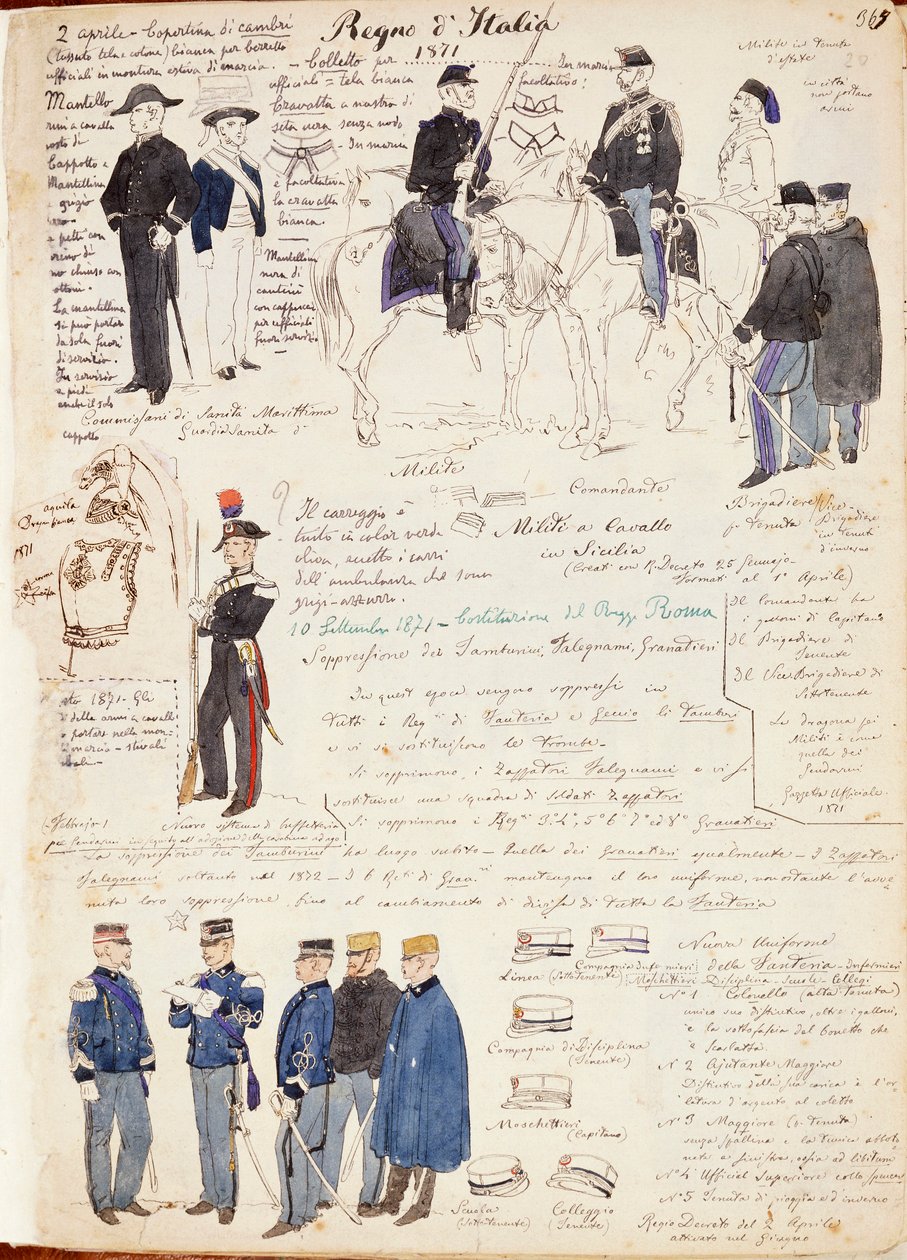 Regno d'Italia
1871
365
20
2 aprile - Copertina di cambrì
(tessuto tela e cotone) bianca per berretto
ufficiali in montura estiva di marcia.
- Colletto per
ufficiali = tela bianca
Cravatta a nastro di
seta nera senza nodo
- In marcia
è facoltativa
la cravatta
bianca.
In marcia
facoltativo:
Milite in tenuta
d'estate
in città
non portano
armi
Mantello
armi a cavallo
vosto di
Cappotto e
Mantellina
grigio
petti con
no chiuso con
La mantellina
si può portare
da sola fuori
di servizio.
In servizio
a piedi
anche il solo
cappotto
Mantellina
nera di
con cappuccio
per ufficiali
fuori servizio.
Commissari di Sanità Marittima
Guardia Sanità
Milite
Comandante
Militi a Cavallo
in Sicilia
(Creati con R. Decreto 25 Gennajo-
Formati al 1° Aprile)
Brigadiere
tenuta
Vice-
Brigadiere
in tenuta
d'inverno
Il Comandante ha
i galloni di Capitano
Il Brigadiere di
Tenente
Il Vice Brigadiere di
Sottotenente
La dragona pei
Militi è come
quella dei
Gendarmi
Gazzetta Ufficiale.
1871
aquila
1871
Il carreggio è
tutto in color verde
oliva, eccetto i carri
dell'ambulanza che sono
grigi-azzurro.
10 Settembre 1871 - Costituzione del Regg. Roma
Soppressione dei Tamburini, Falegnami, Granatieri
In quest'epoca vengono soppressi in
tutti i Reg.ti di Fanteria e Genio li tamburi
e vi si sostituiscono le trombe-
Si sopprimono, i Zappatori Falegnami e vi si
sostituisce una squadra di soldati Zappatori
Si sopprimono i Reg.ti 3° 4° 5° 6° 7° ed 8° Granatieri
1871. Gli
delle armi a cavallo
portare nella mon-
marcia - stivali
1 Febbrajo
Nuovo sistema di buffetteria
pei Gendarmi in seguito all'adozione della carabina ad ago
La soppressione dei Tamburini ha luogo subito - Quella dei Granatieri egualmente - I Zappatori
Falegnami soltanto nel 1872 - I 6 Reg.ti di Gran.ri mantengono il loro uniforme, nonostante l'avve
nuta loro soppressione, fino al cambiamento di divisa di tutta la Fanteria
Linea (Sottotenente)
Compagnia Infermieri
Compagnia di Disciplina
(Tenente)
Moschettieri
(Capitano)
Scuola
(Sottotenente)
Collegio
(Tenente)
Nuova Uniforme
della Fanteria - Infermieri
Moschettieri - Disciplina - Scuole - Collegi
N° 1 Colonello (alta tenuta)
unico suo distintivo, oltre i galloni,
è la sottofascia del bonetto che
è scarlatta.
N° 2 Ajutante Maggiore
Distintivo della sua carica è l'or-
latura d'argento al coletto
N° 3 Maggiore (p. tenuta)
senza spalline e la tunica abboto
nata a sinistra, ossia ad libitum
N° 4 Ufficial Superiore collo spencer
N° 5 Tenuta di pioggia e d'inverno -
Regio Decreto del 2 Aprile
attivato nel Giugno